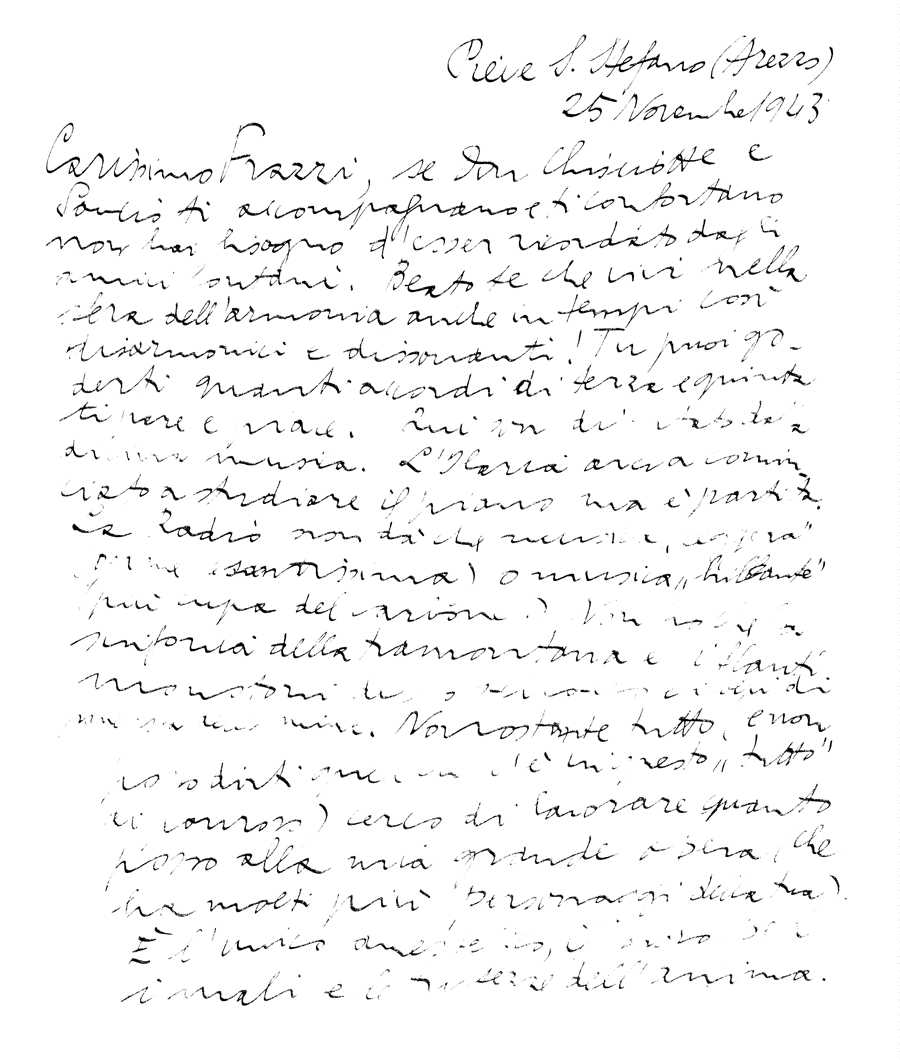 Pieve S. Stefano (Arezzo)
25 Novembre 1943
Carissimo Frazzi, se Don Chisciotte e
Sancio ti accompagnano e ti confortano
non hai bisogno d'esser ricordato dagli
amici lontani. Beato te che vivi nella
sfera dell'armonia anche in tempi così
disarmonici e dissonanti! Tu puoi go-
derti quanti accordi di terza e quinta
ti pare e piace. Qui son di
musica. L'Ilaria aveva comin-
ciato a studiare il piano ma è partita.
La Radio non dà che musica "leggera"
(pesantissima) o musica "brillante"
(più cupa del carbone.) Non
sinfonia della tramontana e i flauti
monotoni
Nonostante tutto, (e non
posso dirti quel che c'è in questo "tutto"
) cerco di lavorare quanto
posso alla mia grande opera (che
ha molti più personaggi della tua).
È l'unico
i mali e le dell'anima.